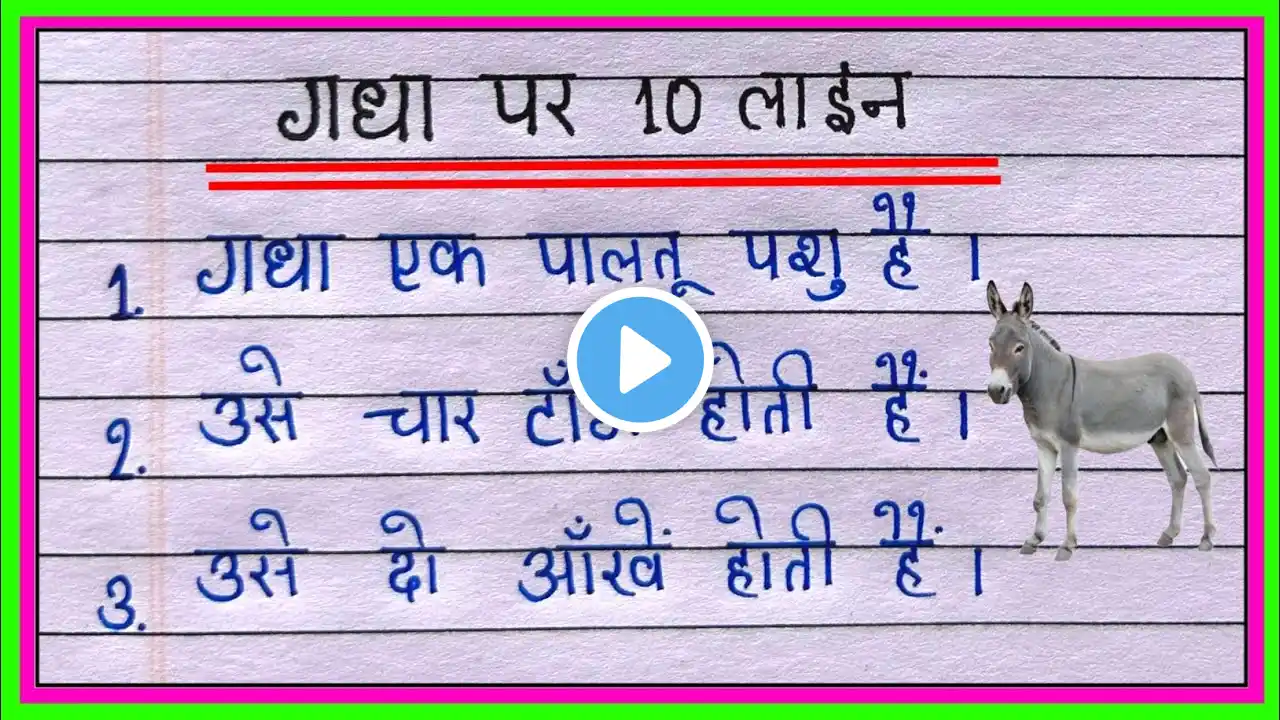 गधा पर 10 लाईन
1. गधा एक पालतू पशु है ।
2. उसे चार होती हैं ।
3. उसे दो आँखें होती हैं ।